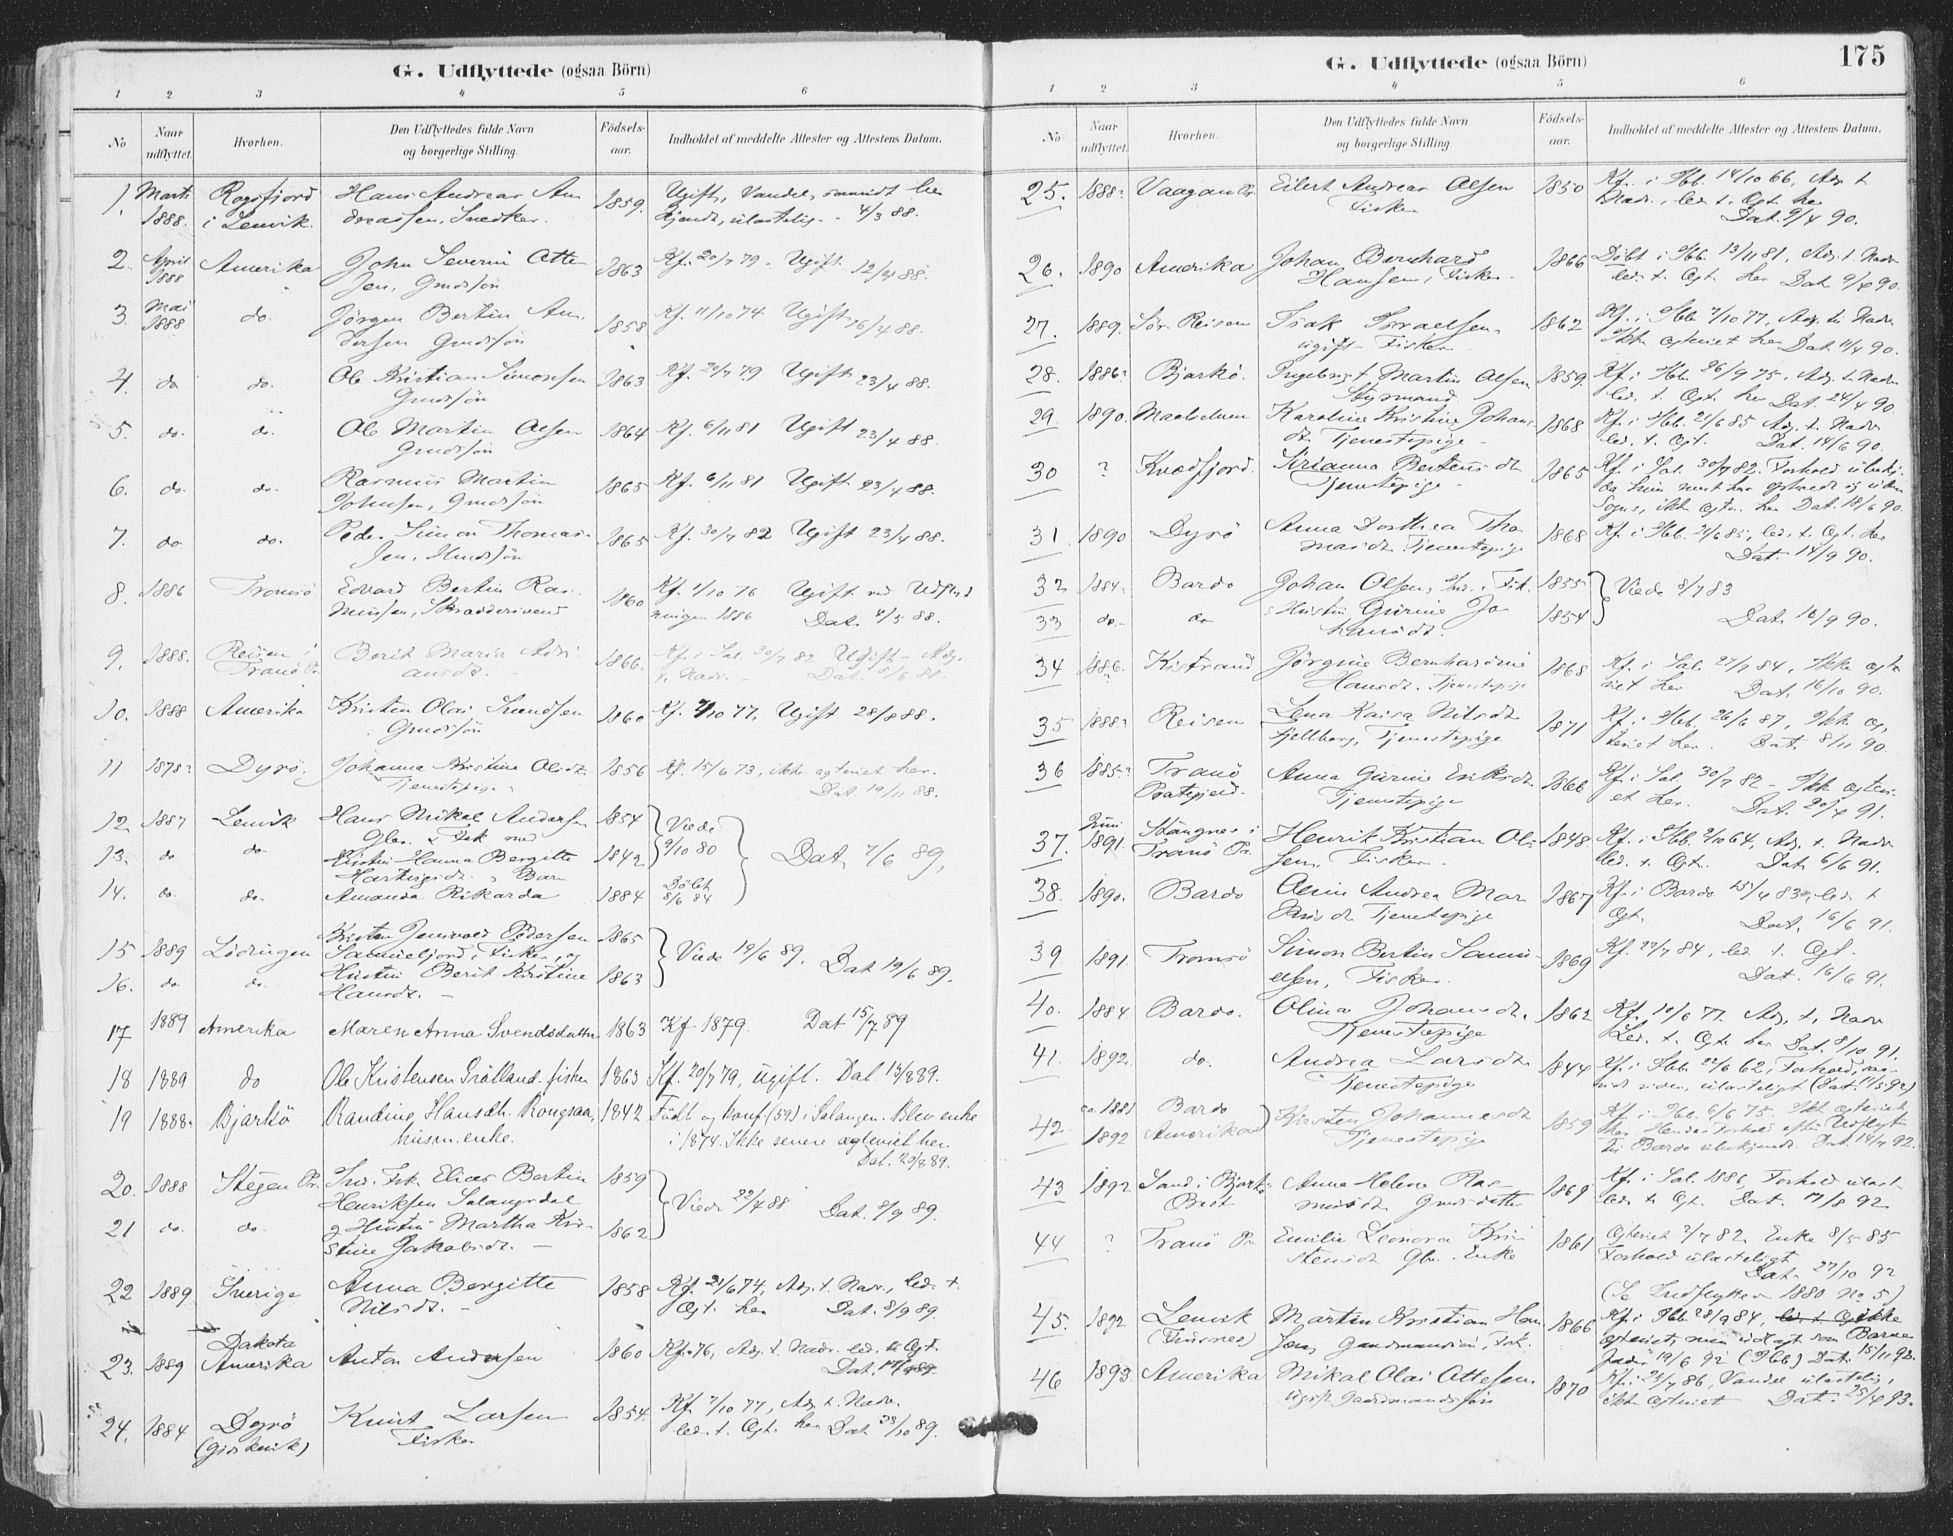 G. Udflyttede (ogsaa Börn)
1 2 3 4 5 6
No Naar udflyttet. Hvorhen. Den Udflyttedes fulde Navn og borgerlige Stilling. Födsels-aar. Indholdet af meddelte Attester og Attestens Datum.
1. Marts 1888. i Lenvik. Hans Andreas An
dreassen, Snedker. 1859. Ugift, Vandel, saavidt her
kjendt, ulastelig - 4/3 88.
2. April 1888 Amerika John Severin Otte-
sen, Gmdssön 1863 Kf. 20/7 79 - Ugift 12/4 88.
3. Mai 1888 do. Jörgen Bertin An-
dersen Gmdssön 1858 Kf. 11/10 74 Ugift 16/4 88.
4. do do. Ole Kristian Simonsen
Gmdssön 1863 Kf. 20/7 79 Ugift 23/4 88.
5. do. do. Ole Martin Olsen
Gmdssön 1864 Kf. 6/11 81 Ugift 23/4 88.
6. do. do. Rasmus Martin
Johnsen, Gmdssön 1865 Kf. 6/11 81 Ugift 23/4 88.
7. do do. Peder Simon Thomas-
sen, Hmdssön 1865 Kf. 30/7 82 Ugift 23/4 88.
8. 1886 Tromsö Edvard Bertin Ras-
mussen, Skræddersvend 1860 Kf. 1/10 76 Ugift ved Udflyt
ningen 1886 Dat. 4/5 88.
9. 1888. Reisen i
Tranö Pr. Berit Maria Adri
ansdt. 1866. Kf. i Sal. 30/7 82 Ugift - Adg.
t. Nadv. - Dat. 88.
10. 1888 Amerika Kristen Olai Svendsen
Gmdssön 1860 Kf. 7/10 77, Ugift 28/8 88.
11 1878? Dyrö Johanna Kristine Olsdt.
Tjenestepige 1856 Kf. 15/6 73, ikke agteriet her.
Dat. 19/11 88.
12. 1887 Lenvik Hans Mikal Andersen
Gbr. & Fisk med 1854 Viede
13. do do Hustru Hanna Bergitte
Hartvigsdt. & Barn 1842 9/10 80 Dat. 7/6 89,
14. do. do. Amanda Rikarda 1884 Döbt
8/6 84
15 1889 Lödingen Kristen Jensvold Pedersen
Samuelfjord, Fisker, og 1865 Viede 19/6 89. Dat 19/6 89.
16. do do. Hustru Berit Kristine
Hansdt. - 1863
17 1889 Amerika Maren Anna Svendsdatter 1863 Kf 1879. Dat 15/7 89
18 1889 do Ole Kristensen Grölland. fisker 1863 Kf. 20/7 79, ugift. Dat. 13/8 89.
19 1888. Bjarkö Randine Hansdt. Rongsaa,
husm.enke. 1842 Födt og konf (59) i Salangen. Blev enke
i 1874. Ikke senere agteriet her.
Dat. 20/8 89.
20. 1888 Stegen Pr. Ind. Fsk. Elias Bertin
Henriksen Salangsdal 1859 Viede 22/4 88 Dat. 8/9 89.
21 do. do. & Hustru Martha Kri-
stine Jakobsdt. - 1862
22 1889 Sverige Anna Bergitte
Nilsdt. - 1858 Kf. 21/6 74, Adg. t. Nadv., led. t.
Ægt. her Dat. 8/9 89.
23. 1889 Dakota
Amerika Anton Andersen 1860 Kf. 76, Adg. t. Nadv. led. t. Ægt.
Dat.
24. 1884 Dyrö Knut Larsen
Fisker 1854. Kf. 7/10 77, Adg. t. Nadv.
led. t. Ægt. her Dat 28/10 89.
G. Udflyttede (ogsaa Börn) 175
1 2 3 4 5 6
No Naar udflyttet. Hvorhen. Den Udflyttedes fulde Navn og borgerlige Stilling. Födsels-aar. Indholdet af meddelte Attester og Attestens Datum.
25. 1888? Vaagan Pr. Eilert Andreas Olsen
Fisker 1850 Kf. i Ibb. 14/10 66, Adg. t.
Nadv., led. t. Ægt. her
Dat. 9/4 90.
26. 1890 Amerika Johan Bernhard
Hansen, Fisker - 1866 Döbt i Ibb. 13/11 81, Adg. t. Nadv
led. t. Ægt. her Dat 9/4 90.
27. 1889. Sör Reisen Isak Israelsen,
ugift - Fisker 1862 Kf. i Ibb. 7/10 77, Adg. til Nadv.
Ikke agteriet her Dat. 11/4 90.
28. 1886? Bjarkö. Ingebrigt Martin Olsen
Styrmand 1859. Kf. i Ibb. 26/9 75, Adg. t. Nadv.
led. t. Ægt. her Dat. 24/4 90.
29. 1890. Maalselven Karoline Kristine Johans
dt. Tjenestepige - 1868 Kf. i Ibb. 21/6 85 Adg. t. Nadv
led. t. Ægt. Dat. 14/6 90.
30 ? Kvædfjord. Kirianna Berteus dt
Tjenestepige - 1865 Kf. i Sal. 30/7 82. Forhold
31. 1890 Dyrö Anna Dorthea Tho
masdt. Tjenestepige 1868 Kf. i Ibb. 21/6 85, led. t. Ægt. her
Dat. 14/9 90.
32 1884. Bardo Johan Olsen, Ind. & Fsk. 1855 Viede 8/7 83
33 do. do Hustru Gurine Jo
hansdt. 1854 Dat. 16/9 90.
34 1886. Kistrand Jörgine Bernhardine
Hansdt. Tjenestepige 1868 Kf. i Sal. 27/7 84, Ikke agte
riet her Dat. 16/10 90.
35 1888? Reisen Lena Kaisa Nilsdt
Fjellborg, Tjenestepige 1871 Kf. i Ibb. 26/6 87, Ikke ag.
teriet her. Dat. 8/11 90.
36 1885? Tranö
Præstegjeld. Anna Gurine Eriksdt
Tjenestepige 1866 Kf. i Sal. 30/7 82 - Ikke agteri-
et her. Dat. 20/4 91.
37. Juni 1891. Stangnes i
Tranö Pr. Henrik Kristian Ol-
sen, Fisker. 1848 Kf. i Ibb. 2/10 64, Adg. t. Nadv
led. t. Ægt. Dat 6/6 91.
38. 1890. Bardo Oline Andrea Mar
Tjenestepige 1867 Kf. i Bardo 15/4 83, led. t
Ægt. Dat. 16/6 91.
39. 1891. Tromsö Simon Bertin Samu-
elsen, Fisker. 1869 Kf. 27/7 84, led. t. Ægt.
Dat. 16/6 91.
40. 1884 Bardo. Olina Johansdt.
Tjenestepige 1862 Kf. 10/6 77. Adg. t. Nadv
Led. t. Ægt. her Dat. 8/10 91.
41. 1892. do. Andrea Larsdt
Tjenestepige 1844 Kf. i Ibb. 22/6 62, Forhold, saa-
vidt vides, ulasteligt (Dat. 11/5 92)
42. ca. 1881 Bardo
1892 Amerika Kirsten Johannesdt
Tjenestepige 1859 Kf. i Ibb. 6/6 75. Ikke agteriet
her. Hendes Forhold efter Udflytn.
til Bardo ubekjendt. Dat. 14/7 92.
43 1892 Sand i Bjarkö
Anne Helene Ras-
musdt Gmds datter 1869 Kf. i Sal. 1886, Forhold ulast.
led. t. Ægt. Dat. 17/8 92
44 ? Tranö Pr. Emilie Leonora Kri
stensdt Gbr. Enke 1861 Ægteviet 2/7 82, Enke 8/5 85
Forhold ulasteligt
Dat. 27/10 92
(Se Indflyttede 1880 No 5)
45. 1892 Lenvik Martin Kristian Han
sen, Gaardmandssön, Fsk. 1866 Kf. i Ibb. 28/9 84, led. t. Ægt ikke
agteriet, men udlagt som Barne
fader 19/6 92 (Ibb) Dat. 15/11 92.
46 1893. Amerika Mikal Olai Ottesen
ugift Gaardmandssön 1870 Kf. i 25/7 86, Vandel ulastelig,
ikke agteriet Dat. 25/4 93.